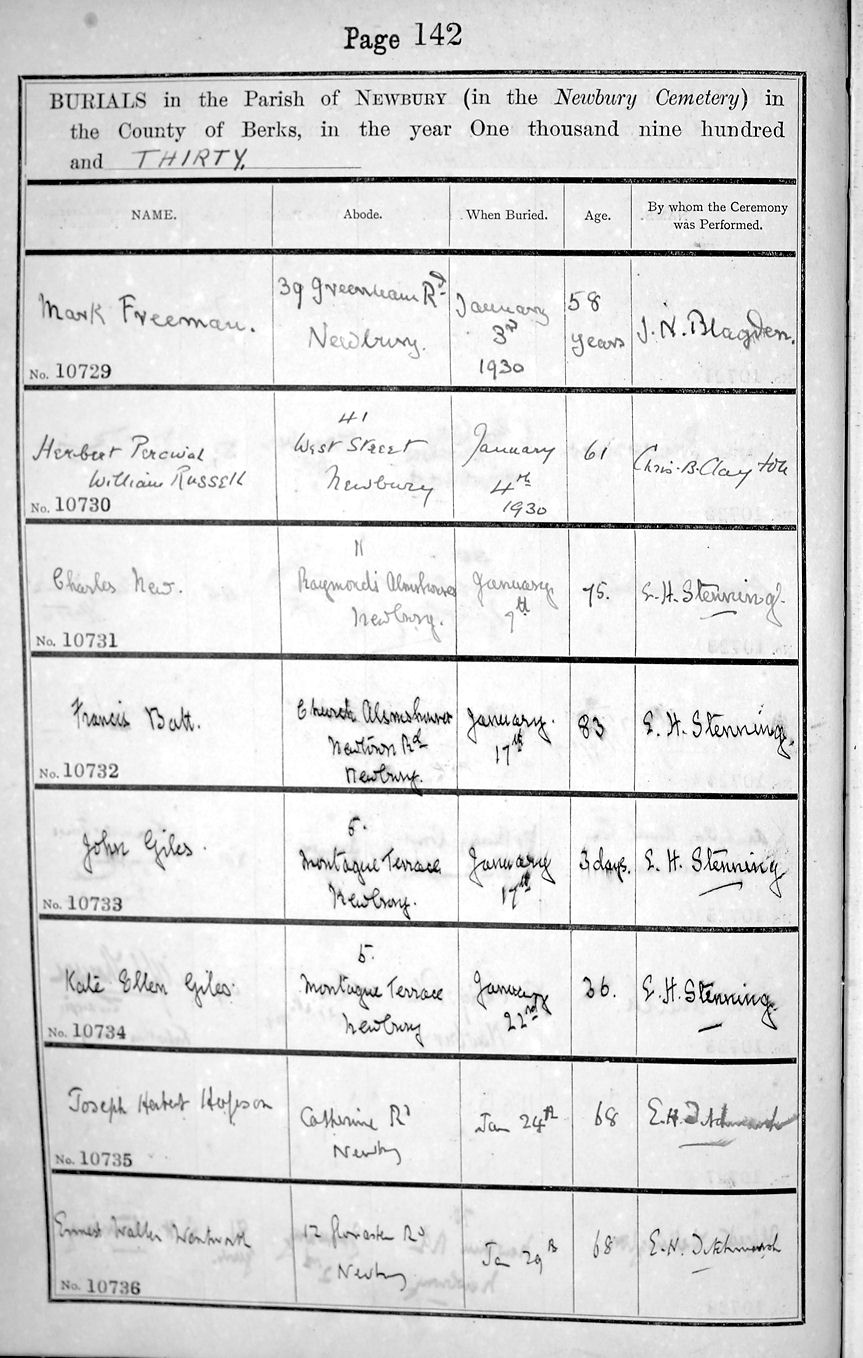 Page 142
BURIALS in the Parish of NEWBURY (in the Newbury Cemetery) in
the County of Berks, in the year One thousand nine hundred
and THIRTY.
NAME.
Abode.
When Buried.
Age.
By whom the Ceremony
was Performed.
Mark Freeman.
No. 10729
39 Greenham Rd
Newbury.
January
3rd
1930
58
years
J. N. Blagden.
Herbert Percival
William Russell
No. 10730
41
West Street
Newbury
January
4th
1930
61
Chris. B. Clayton
Charles New.
No. 10731
11
Raymond's Almshouses
Newbury.
January
75.
E. H. Stenning.
Francis Batt.
No. 10732
Church Almshouses
Newtown Rd
Newbury.
January.
17th
83
E. H. Stenning.
John Giles.
No. 10733
5.
Montague Terrace
Newbury.
January
17th
3 days.
E. H. Stenning
Kate Ellen Giles.
No. 10734
5.
Montague Terrace
Newbury
January
22nd
36.
E. H. Stenning.
Joseph Herbert
No. 10735
Catherine Rd
Newbury
Jan 24th
68
E. H. Titchmarsh
Ernest Walter Wentworth
No. 10736
12 Gloucester Rd
Newbury
Jan 29th
68
E. H. Titchmarsh